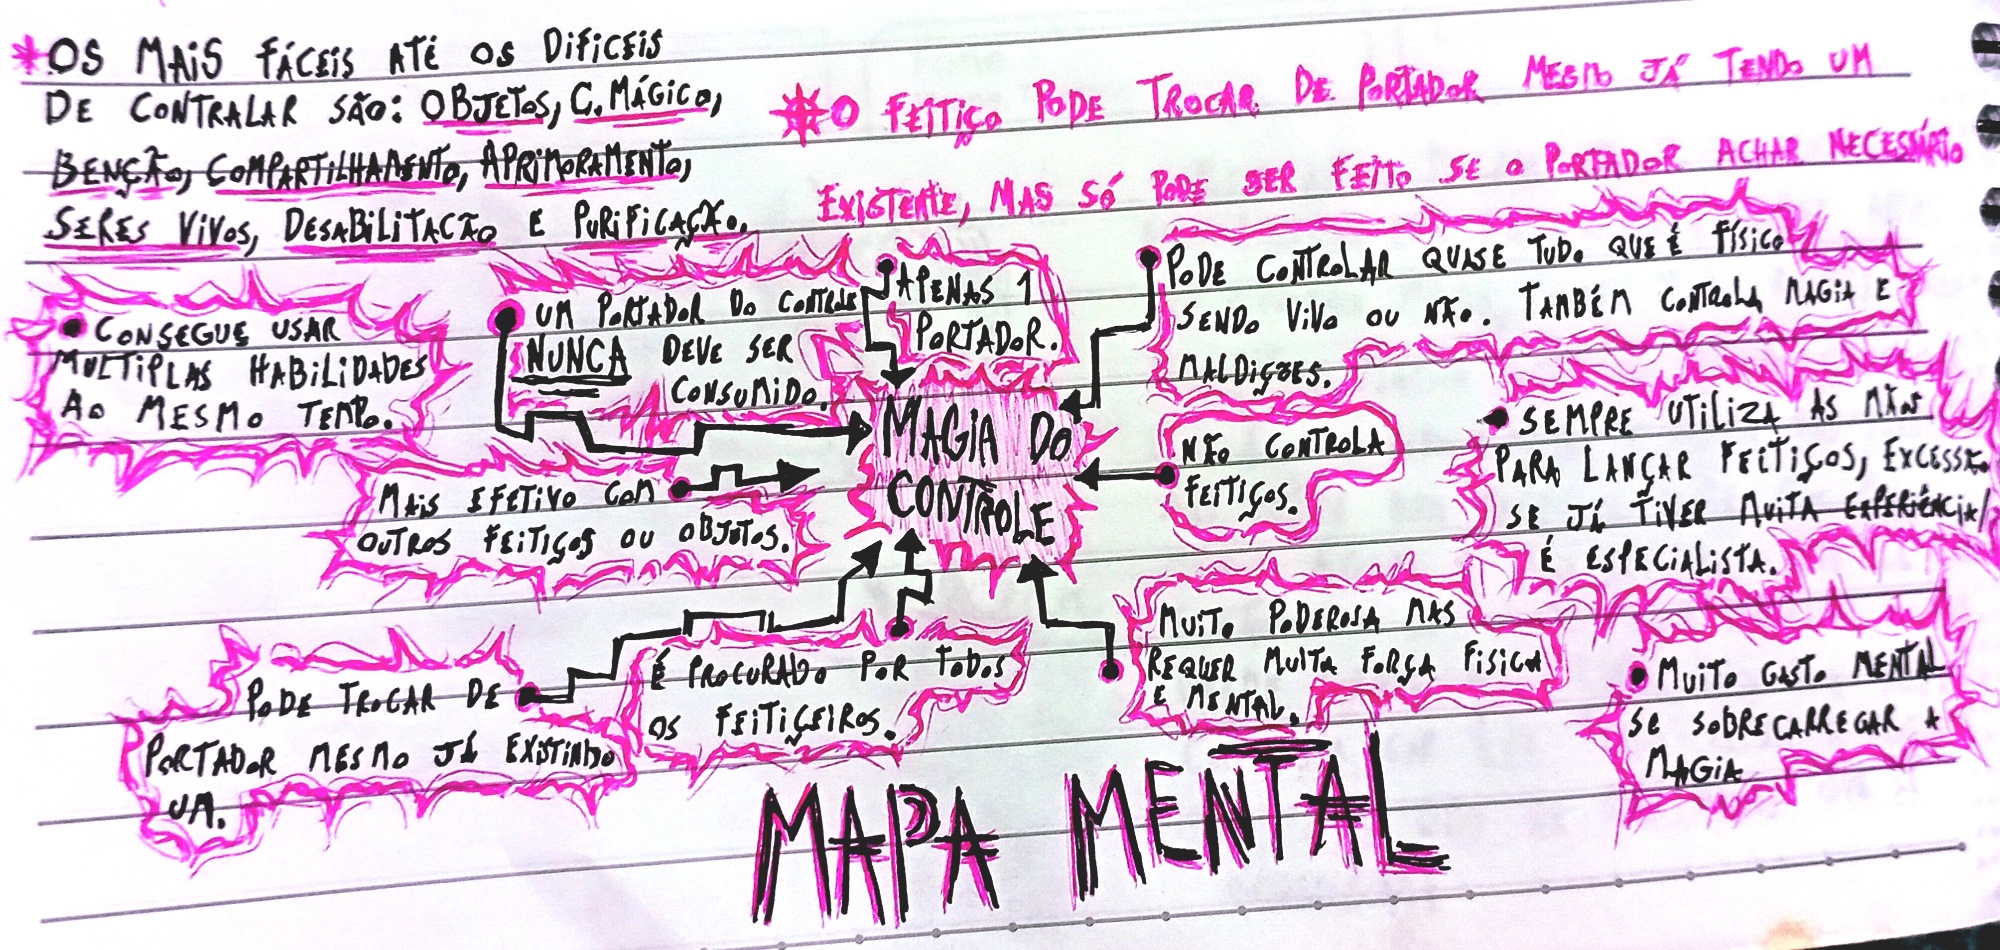 *OS MAIS FÁCEIS ATÉ OS DIFICEIS
DE CONTRALAR SÃO: OBJETOS, C. MÁGICO,
BENÇÃO, COMPARTILHAMENTO, APRIMORAMENTO,
SERES VIVOS, DESABILITACÃO E PURIFICAÇÃO.
*O FEITIÇO PODE TROCAR DE PORTADOR MESMO JÁ TENDO UM
EXISTENTE, MAS SÓ PODE SER FEITO SE O PORTADOR ACHAR NECESSÁRIO
• CONSEGUE USAR
MULTIPLAS HABILIDADES
AO MESMO TEMPO.
UM PORTADOR DO CONTROLE
NUNCA DEVE SER
CONSUMIDO.
APENAS 1
PORTADOR.
PODE CONTROLAR QUASE TUDO QUE É FÍSICO
SENDO VIVO OU NÃO. TAMBÉM CONTROLA MAGIA E
MALDIÇÕES.
MAGIA DO
CONTROLE
NÃO CONTROLA
FEITIÇOS.
• SEMPRE UTILIZA AS MÃOS
PARA LANÇAR FEITIÇOS, EXCESSÃO
SE JÁ TIVER MUITA EXPERIÊNCIA/
É ESPECIALISTA.
MAIS EFETIVO COM
OUTROS FEITIÇOS OU OBJETOS.
PODE TROCAR DE
PORTADOR MESMO JÁ EXISTINDO
UM.
É PROCURADO POR TODOS
OS FEITIÇEIROS.
MUITO PODEROSA MAS
REQUER MUITA FORÇA FISICA
E MENTAL.
• MUITO GASTO MENTAL
SE SOBRECARREGAR A
MAGIA
MAPA MENTAL